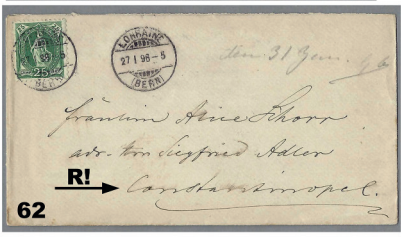 25
LORRAINE
27 I 96 - 5
(BERN)
den 31 Jan. 96
Fräulein Alice Schorr
adr. Hrn Siegfried Adler
R!
Constantinopel.
62